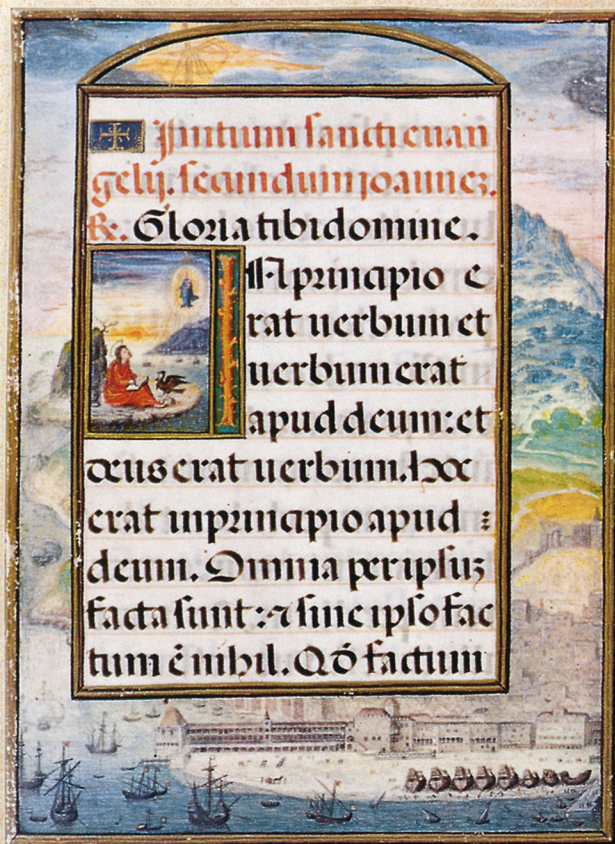 Initium sancti euan
gelij. secundum ioannez.
R. Gloria tibi domine.
IN principio e
rat uerbum et
uerbum erat
apud deum: et
deus erat uerbum. hoc
erat in principio apud :
deum. Omnia per ipsuz
facta sunt: ⁊ sine ipso fac
tum ē nihil. Qđ factum